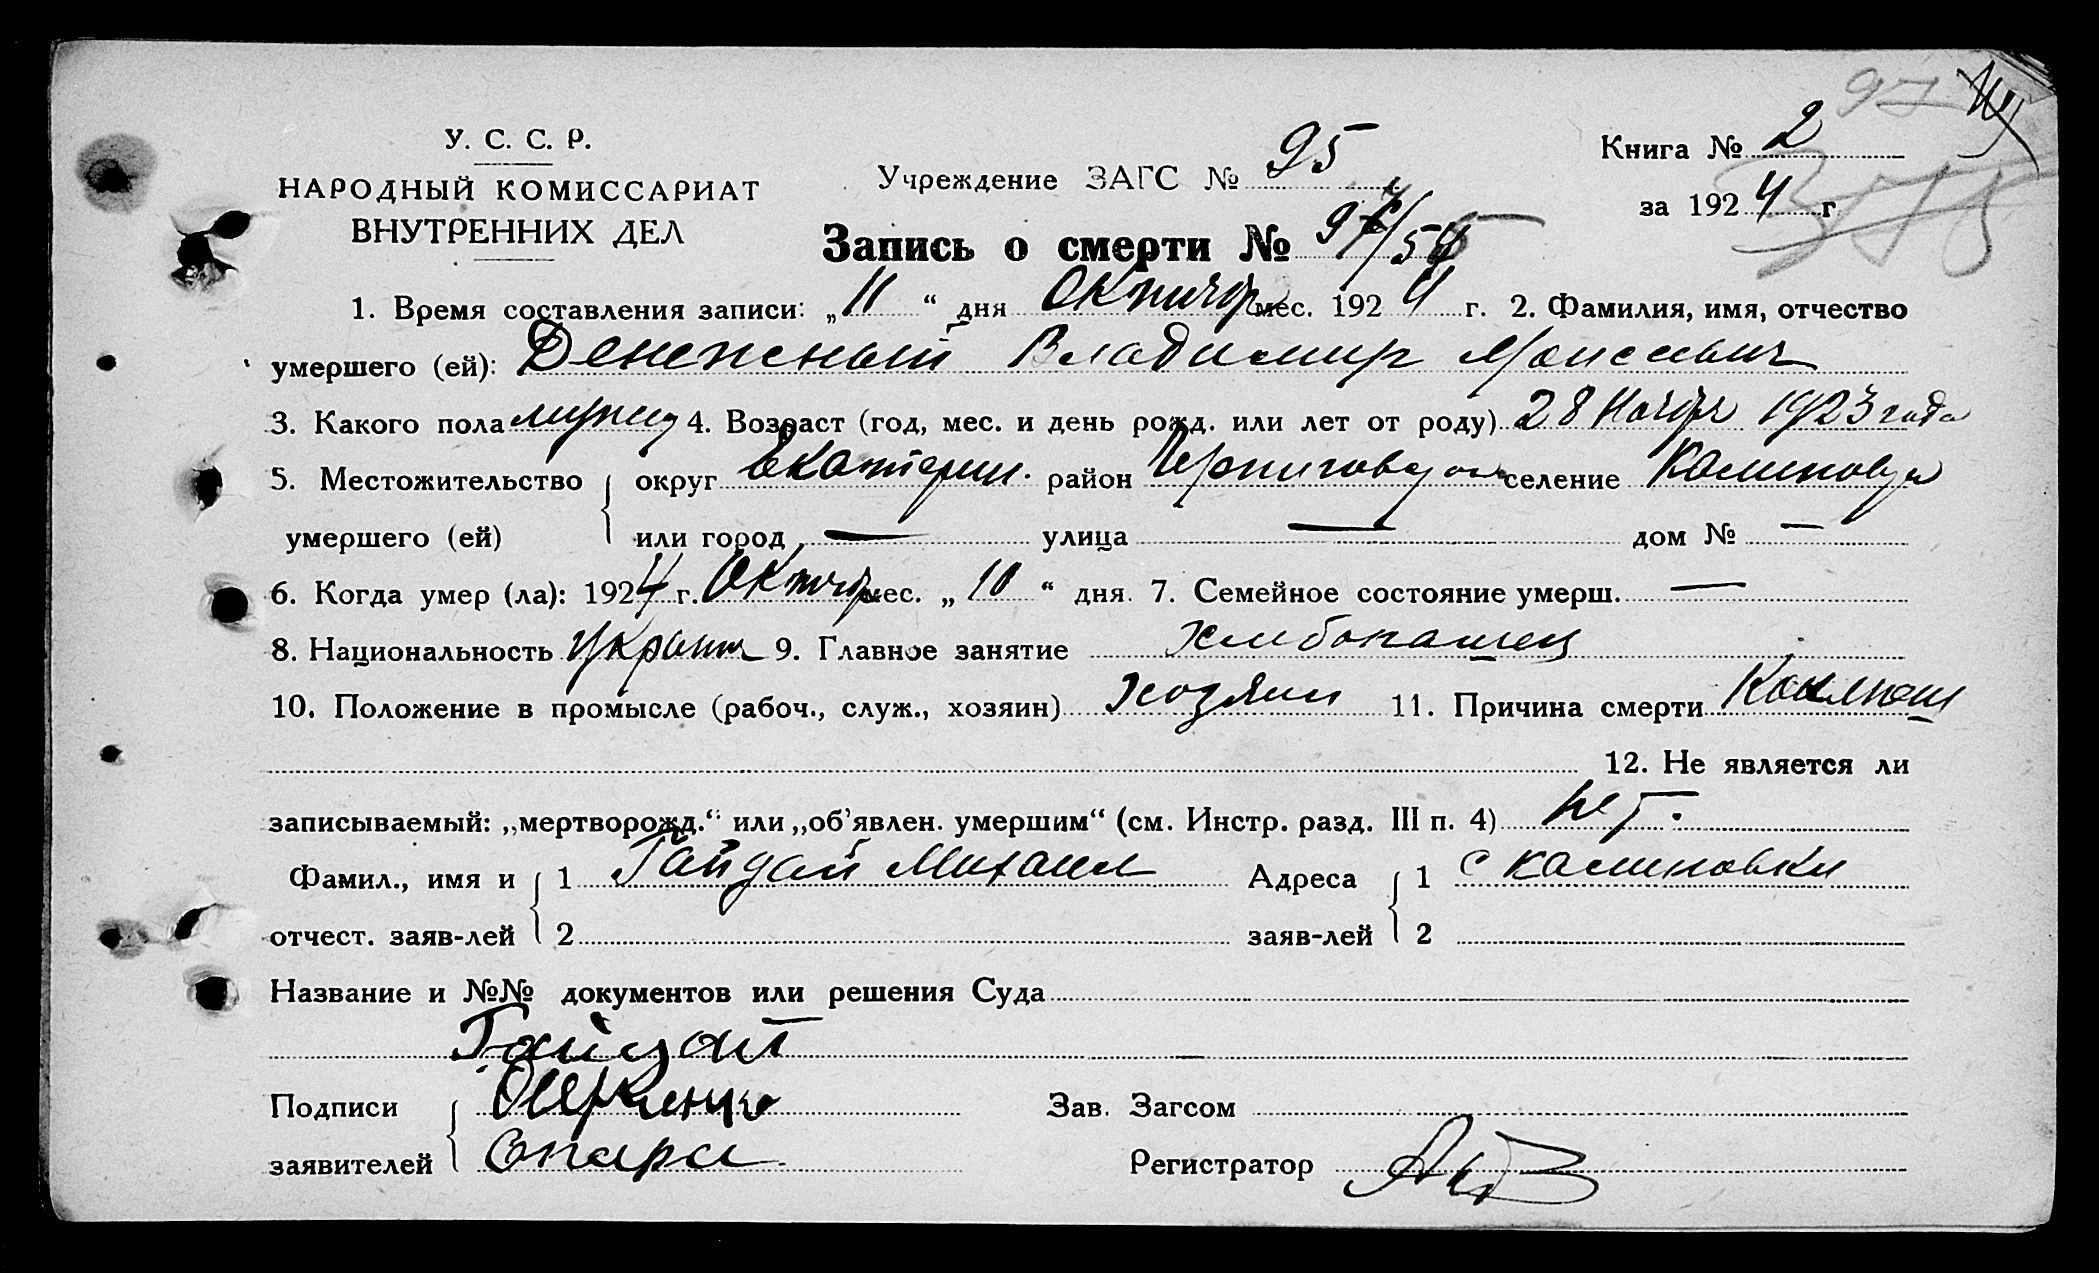 97
У. С. С. Р.
НАРОДНЫЙ КОМИССАРИАТ
ВНУТРЕННИХ ДЕЛ
Учреждение ЗАГС № 95
Книга № 2
за 1924 г.
375
Запись о смерти №
1. Время составления записи: „11“ дня Октября мес. 1924 г. 2. Фамилия, имя, отчество
умершего (ей): Денежный Владимир Моисеевич
3. Какого пола мужск 4. Возраст (год, мес. и день рожд. или лет от роду) 28 Ноября 1923 года
5. Местожительство округ Екатерин. район селение
умершего (ей) или город — улица — дом № —
6. Когда умер (ла): 1924 г. Октября мес. „10“ дня. 7. Семейное состояние умерш. —
8. Национальность украин 9. Главное занятие хлебопашец
10. Положение в промысле (рабоч., служ., хозяин) хозяин 11. Причина смерти Коклюш
12. Не является ли
записываемый: „мертворожд.“ или „об’явлен. умершим“ (см. Инстр. разд. III п. 4) нет.
Фамил., имя и 1 Гайдай Михаил Адреса 1 с Калиновки
отчест. заяв-лей 2 заяв-лей 2
Название и №№ документов или решения Суда
Гайдай
Подписи Зав. Загсом
заявителей Опара Регистратор